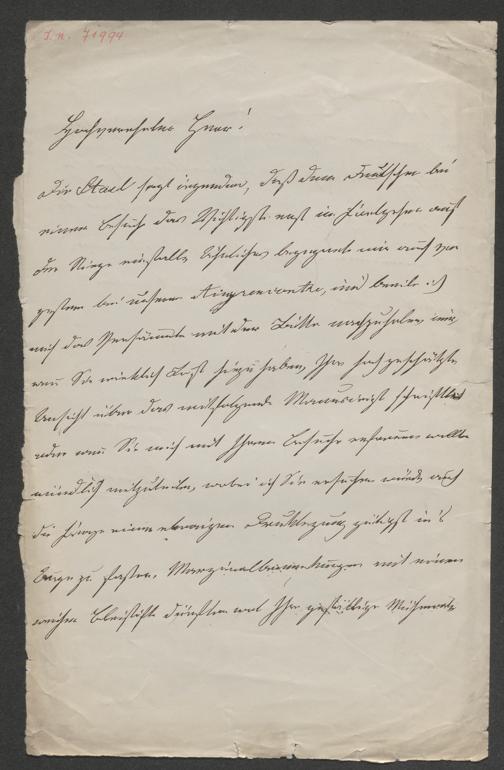 I.N. 71994
Hochverehrter Herr!
Die Stael sagt irgendwo, daß dem Deutschen bei
einem Besuch das Wichtigste erst im Fortgehen auf
der Stiege einfalle. Ähnliches begegnete mir auch vor
gestern bei unserem Rencontre, und beeile ich
mich das Versäumte mit der Bitte nachzuholen, mir,
wenn Sie wirklich Lust hiezu haben, Ihre hochgeschätzte
Ansicht über das mitfolgende Manuscript schriftlich
oder wenn Sie mich mit Ihrem Besuche erfreuen wollten
mündlich mitzutheilen, wobei ich Sie ersuchen würde auch
die Frage einer etwaigen Drucklegung gütigst in's
Auge zu fassen. Marginalbemerkungen mit einem
weichen Bleistift dürften wol Ihre gefällige Mühewal